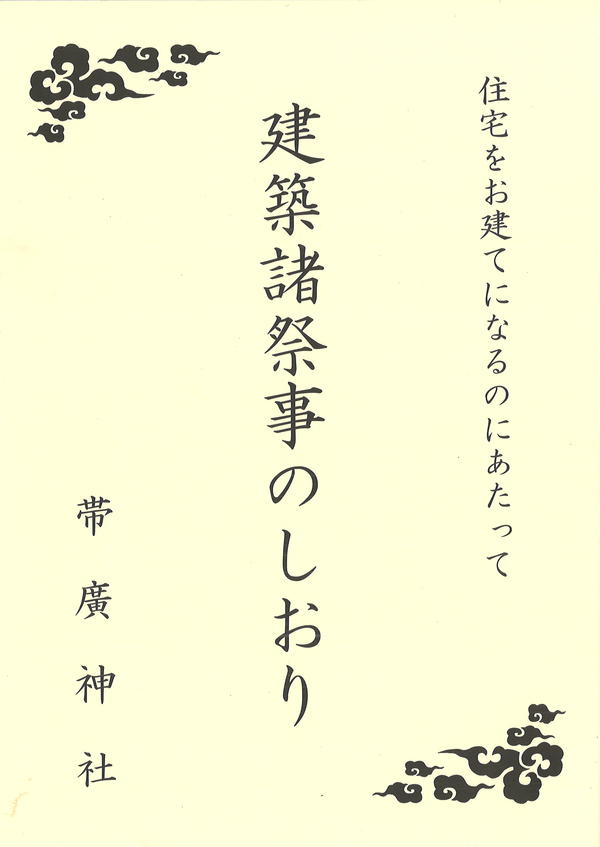 住宅をお建てになるのにあたって
建築諸祭事のしおり
帯廣神社